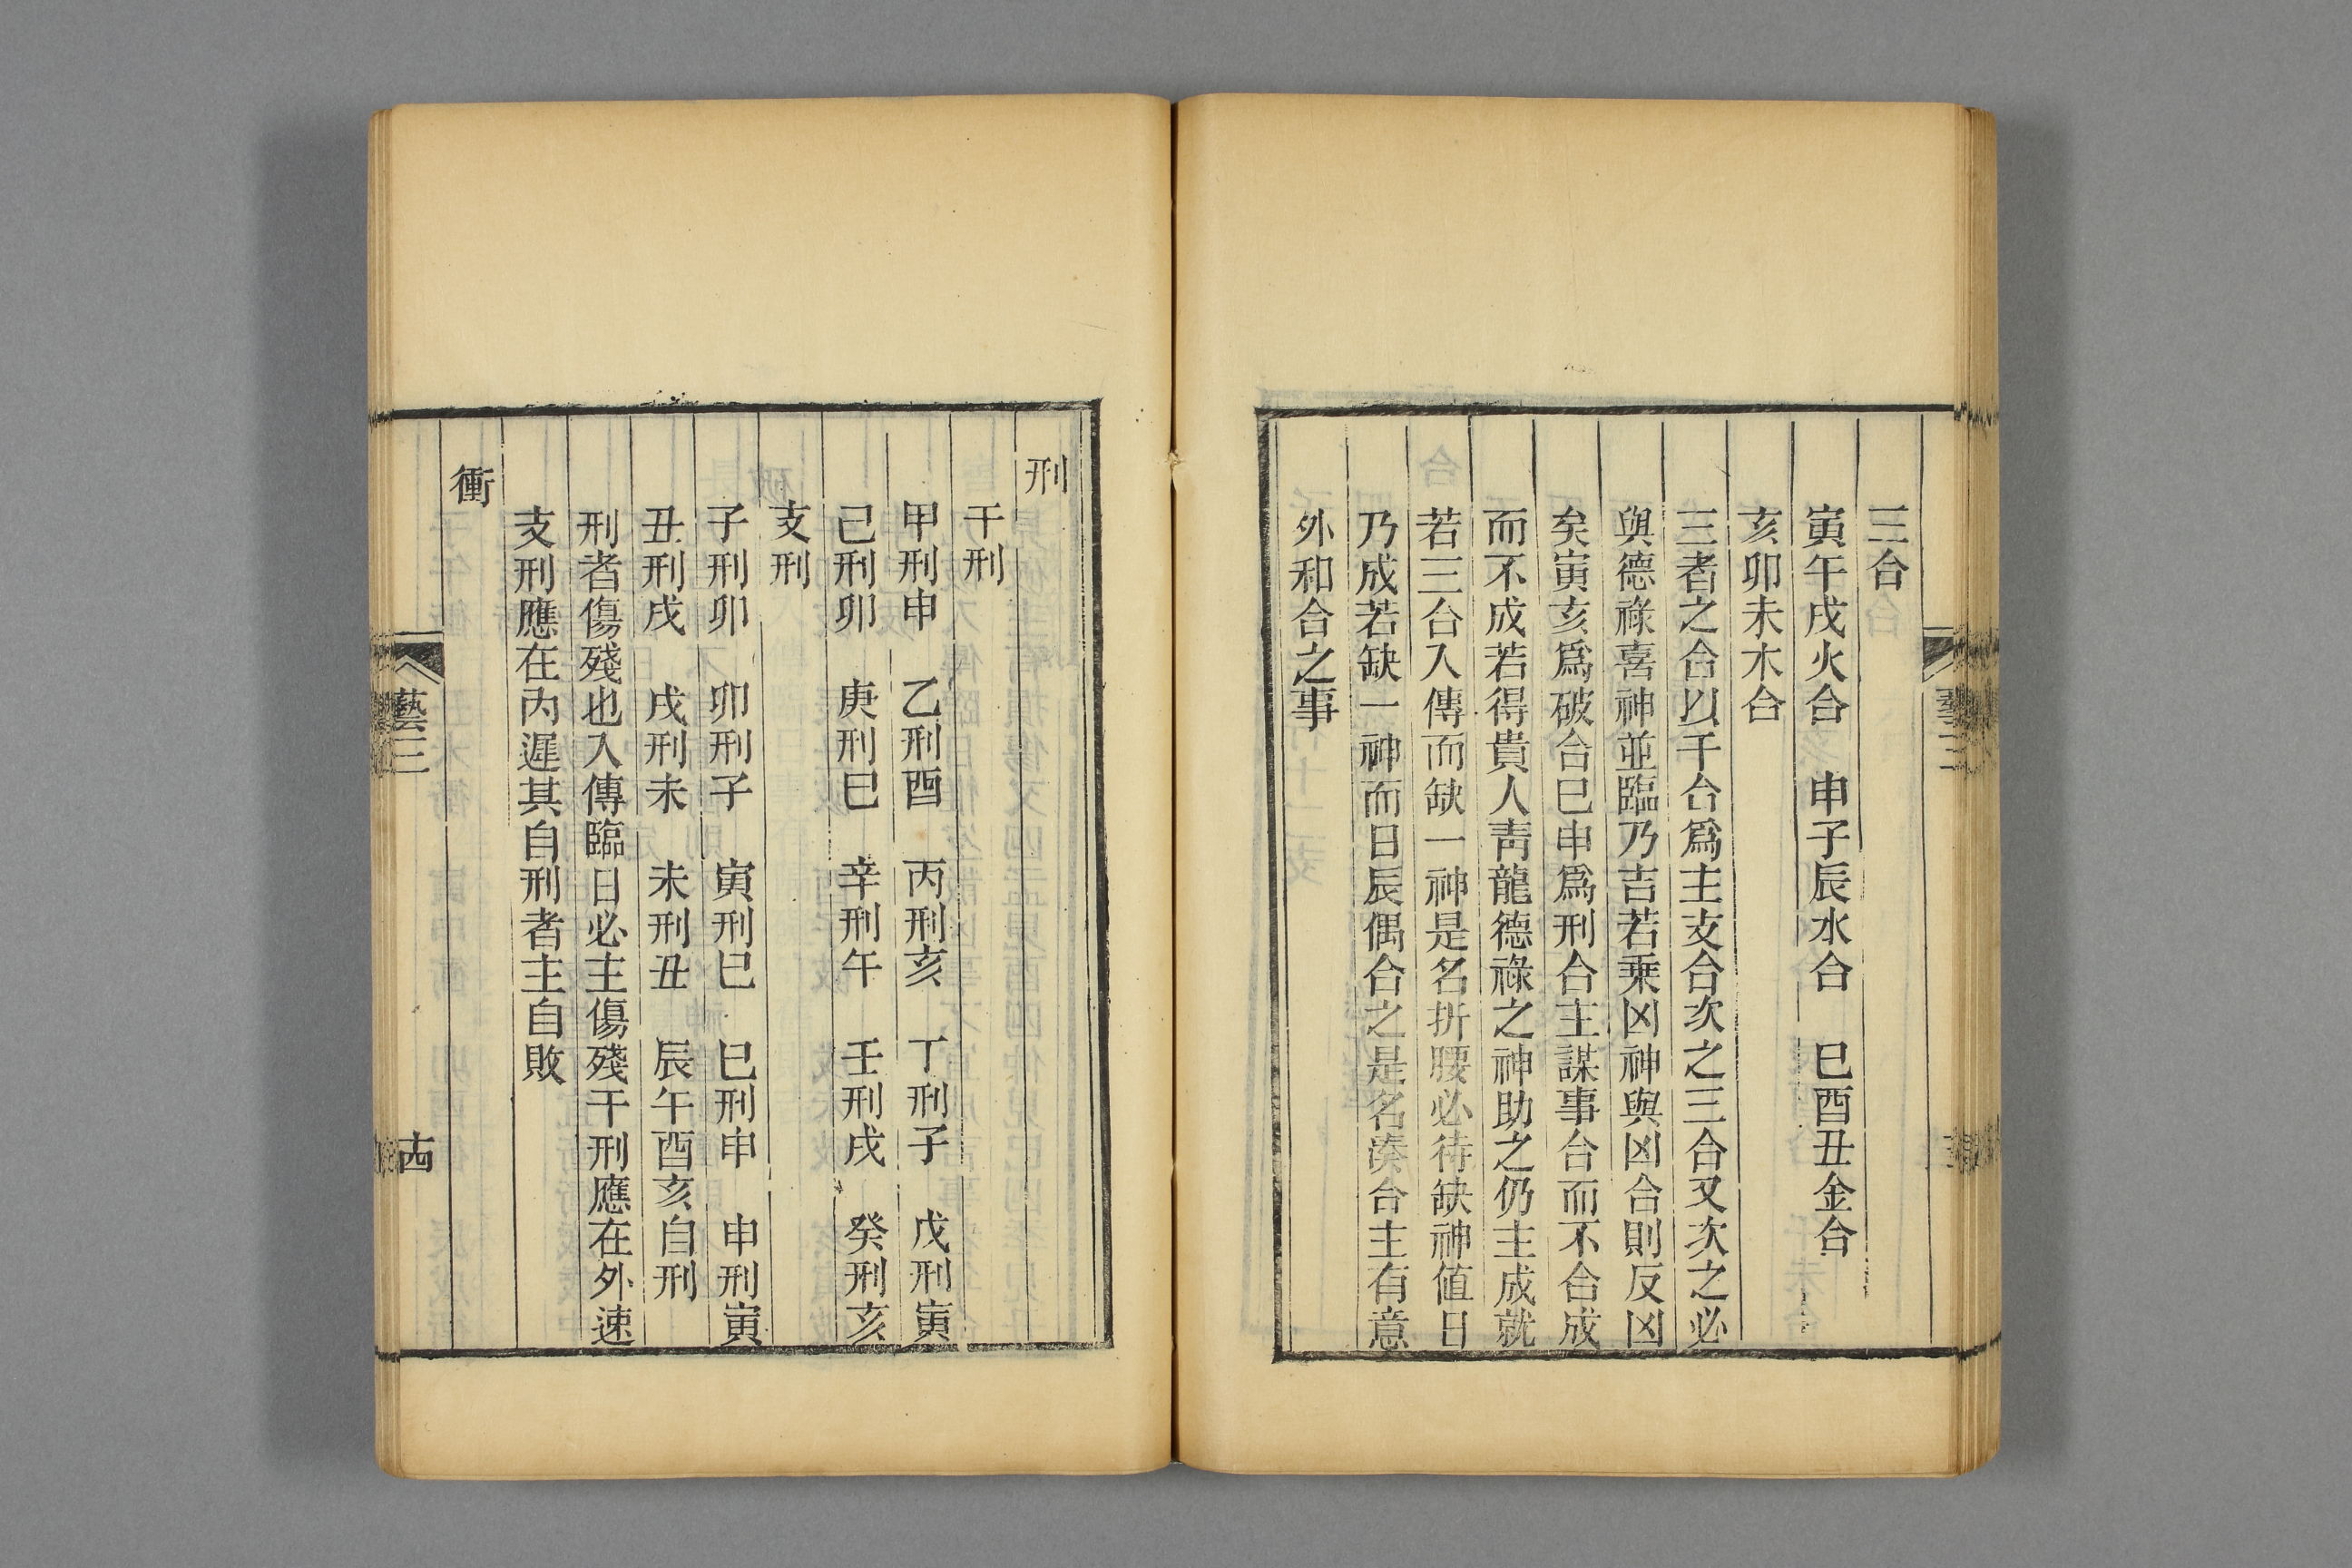 三合
寅午戌火合　申子辰水合　巳酉丑金合
亥卯未木合
三者之合以干合爲主支合次之三合又次之必
與德祿喜神並臨乃吉若乘凶神與凶合則反凶
矣寅亥爲破合巳申爲刑合主謀事合而不合成
而不成若得貴人靑龍德祿之神助之仍主成就
若三合入傳而缺一神是名折腰必待缺神値日
乃成若缺一神而日辰偶合之是名湊合主有意
外和合之事
刑
干刑
甲刑申　乙刑酉　丙刑亥　丁刑子　戊刑寅
己刑卯　庚刑巳　辛刑午　壬刑戌　癸刑亥
支刑
子刑卯　卯刑子　寅刑巳　巳刑申　申刑寅
丑刑戌　戌刑未　未刑丑　辰午酉亥自刑
刑者傷殘也入傳臨日必主傷殘干刑應在外速
支刑應在內遲其自刑者主自敗
衝
藝三
十四